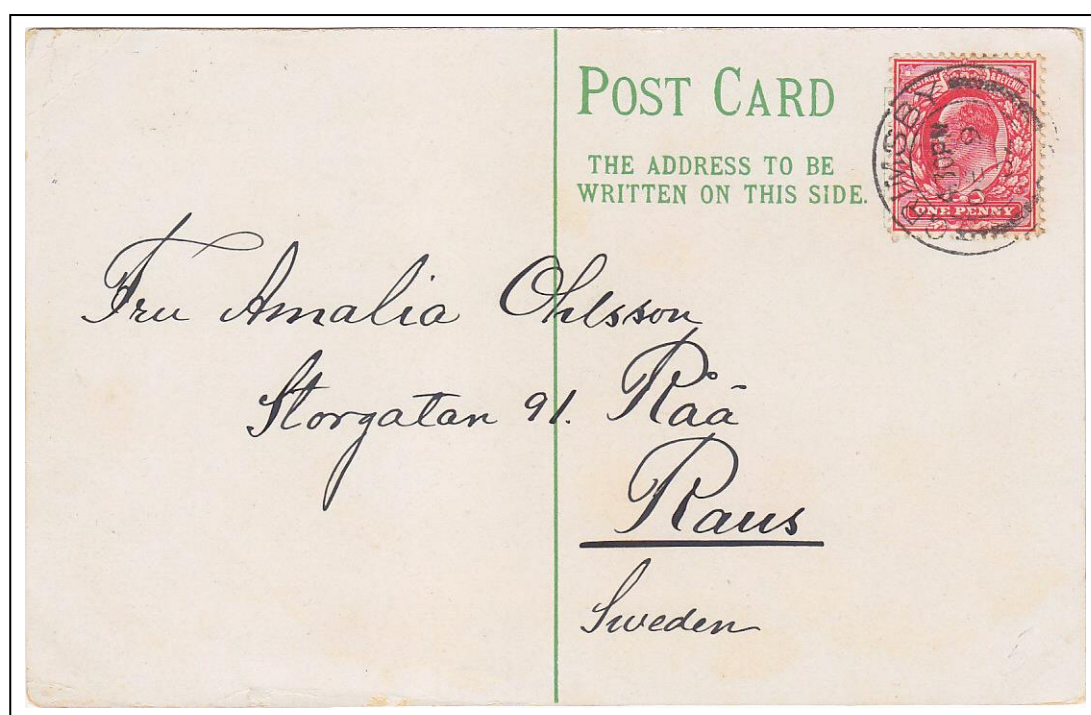 POST CARD
THE ADDRESS TO BE
WRITTEN ON THIS SIDE.
GRIMSBY
ONE PENNY
Fru Amalia Ohlsson
Storgatan 91. Råå
Raus
Sweden